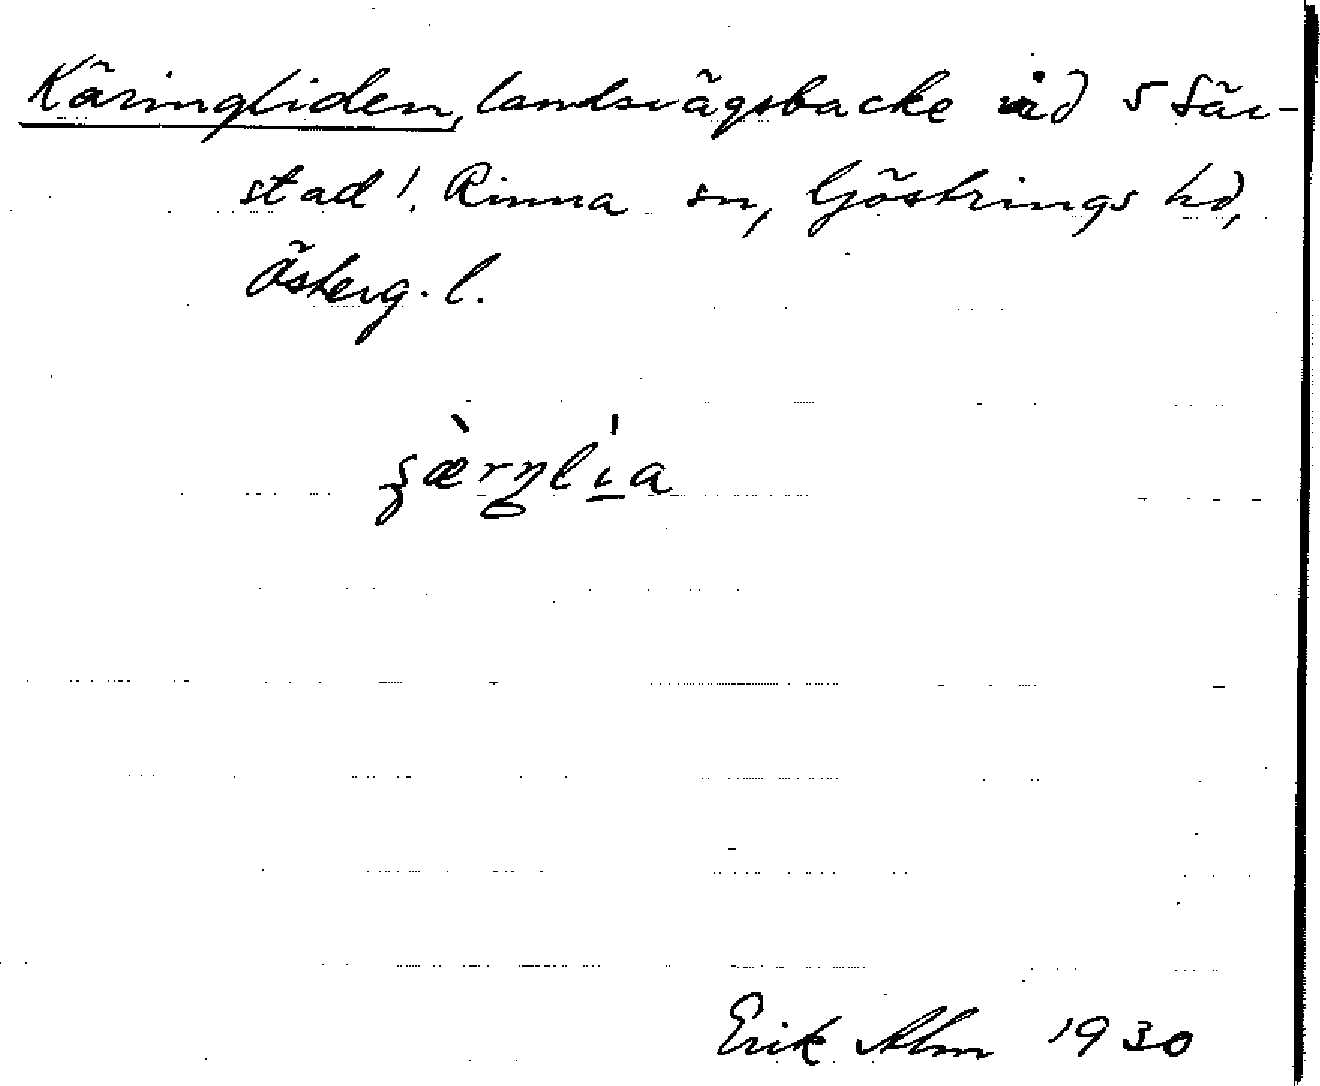 Käringliden, landsvägsbacke vid 5 Sär-
stad !. Rinna sn, Göstrings hd,
Österg. l.
Erik Alm 1930